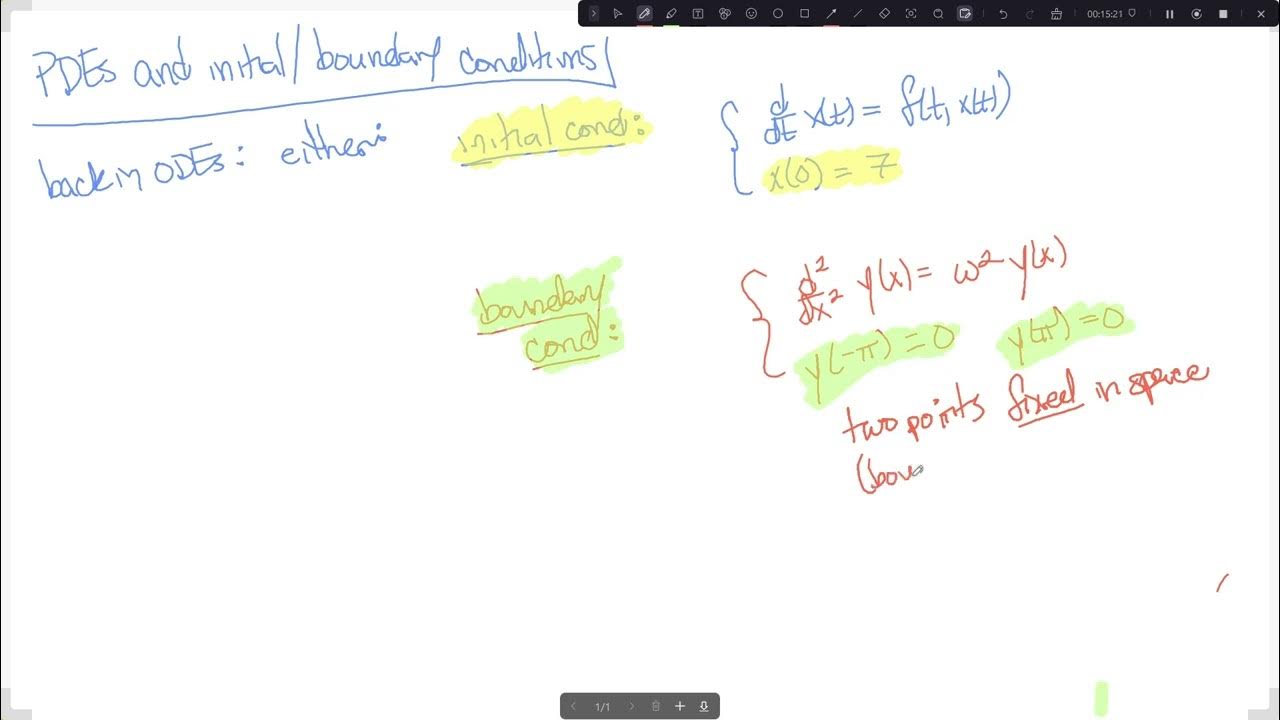 00:15:21
PDEs and initial/boundary conditions
back in ODEs: either:
initial cond:
d/dt x(t) = f(t, x(t))
x(0) = 7
boundary
cond:
d²/dx² y(x) = ω² y(x)
y(-π) = 0 y(π) = 0
two points fixed in space
(bou
1/1